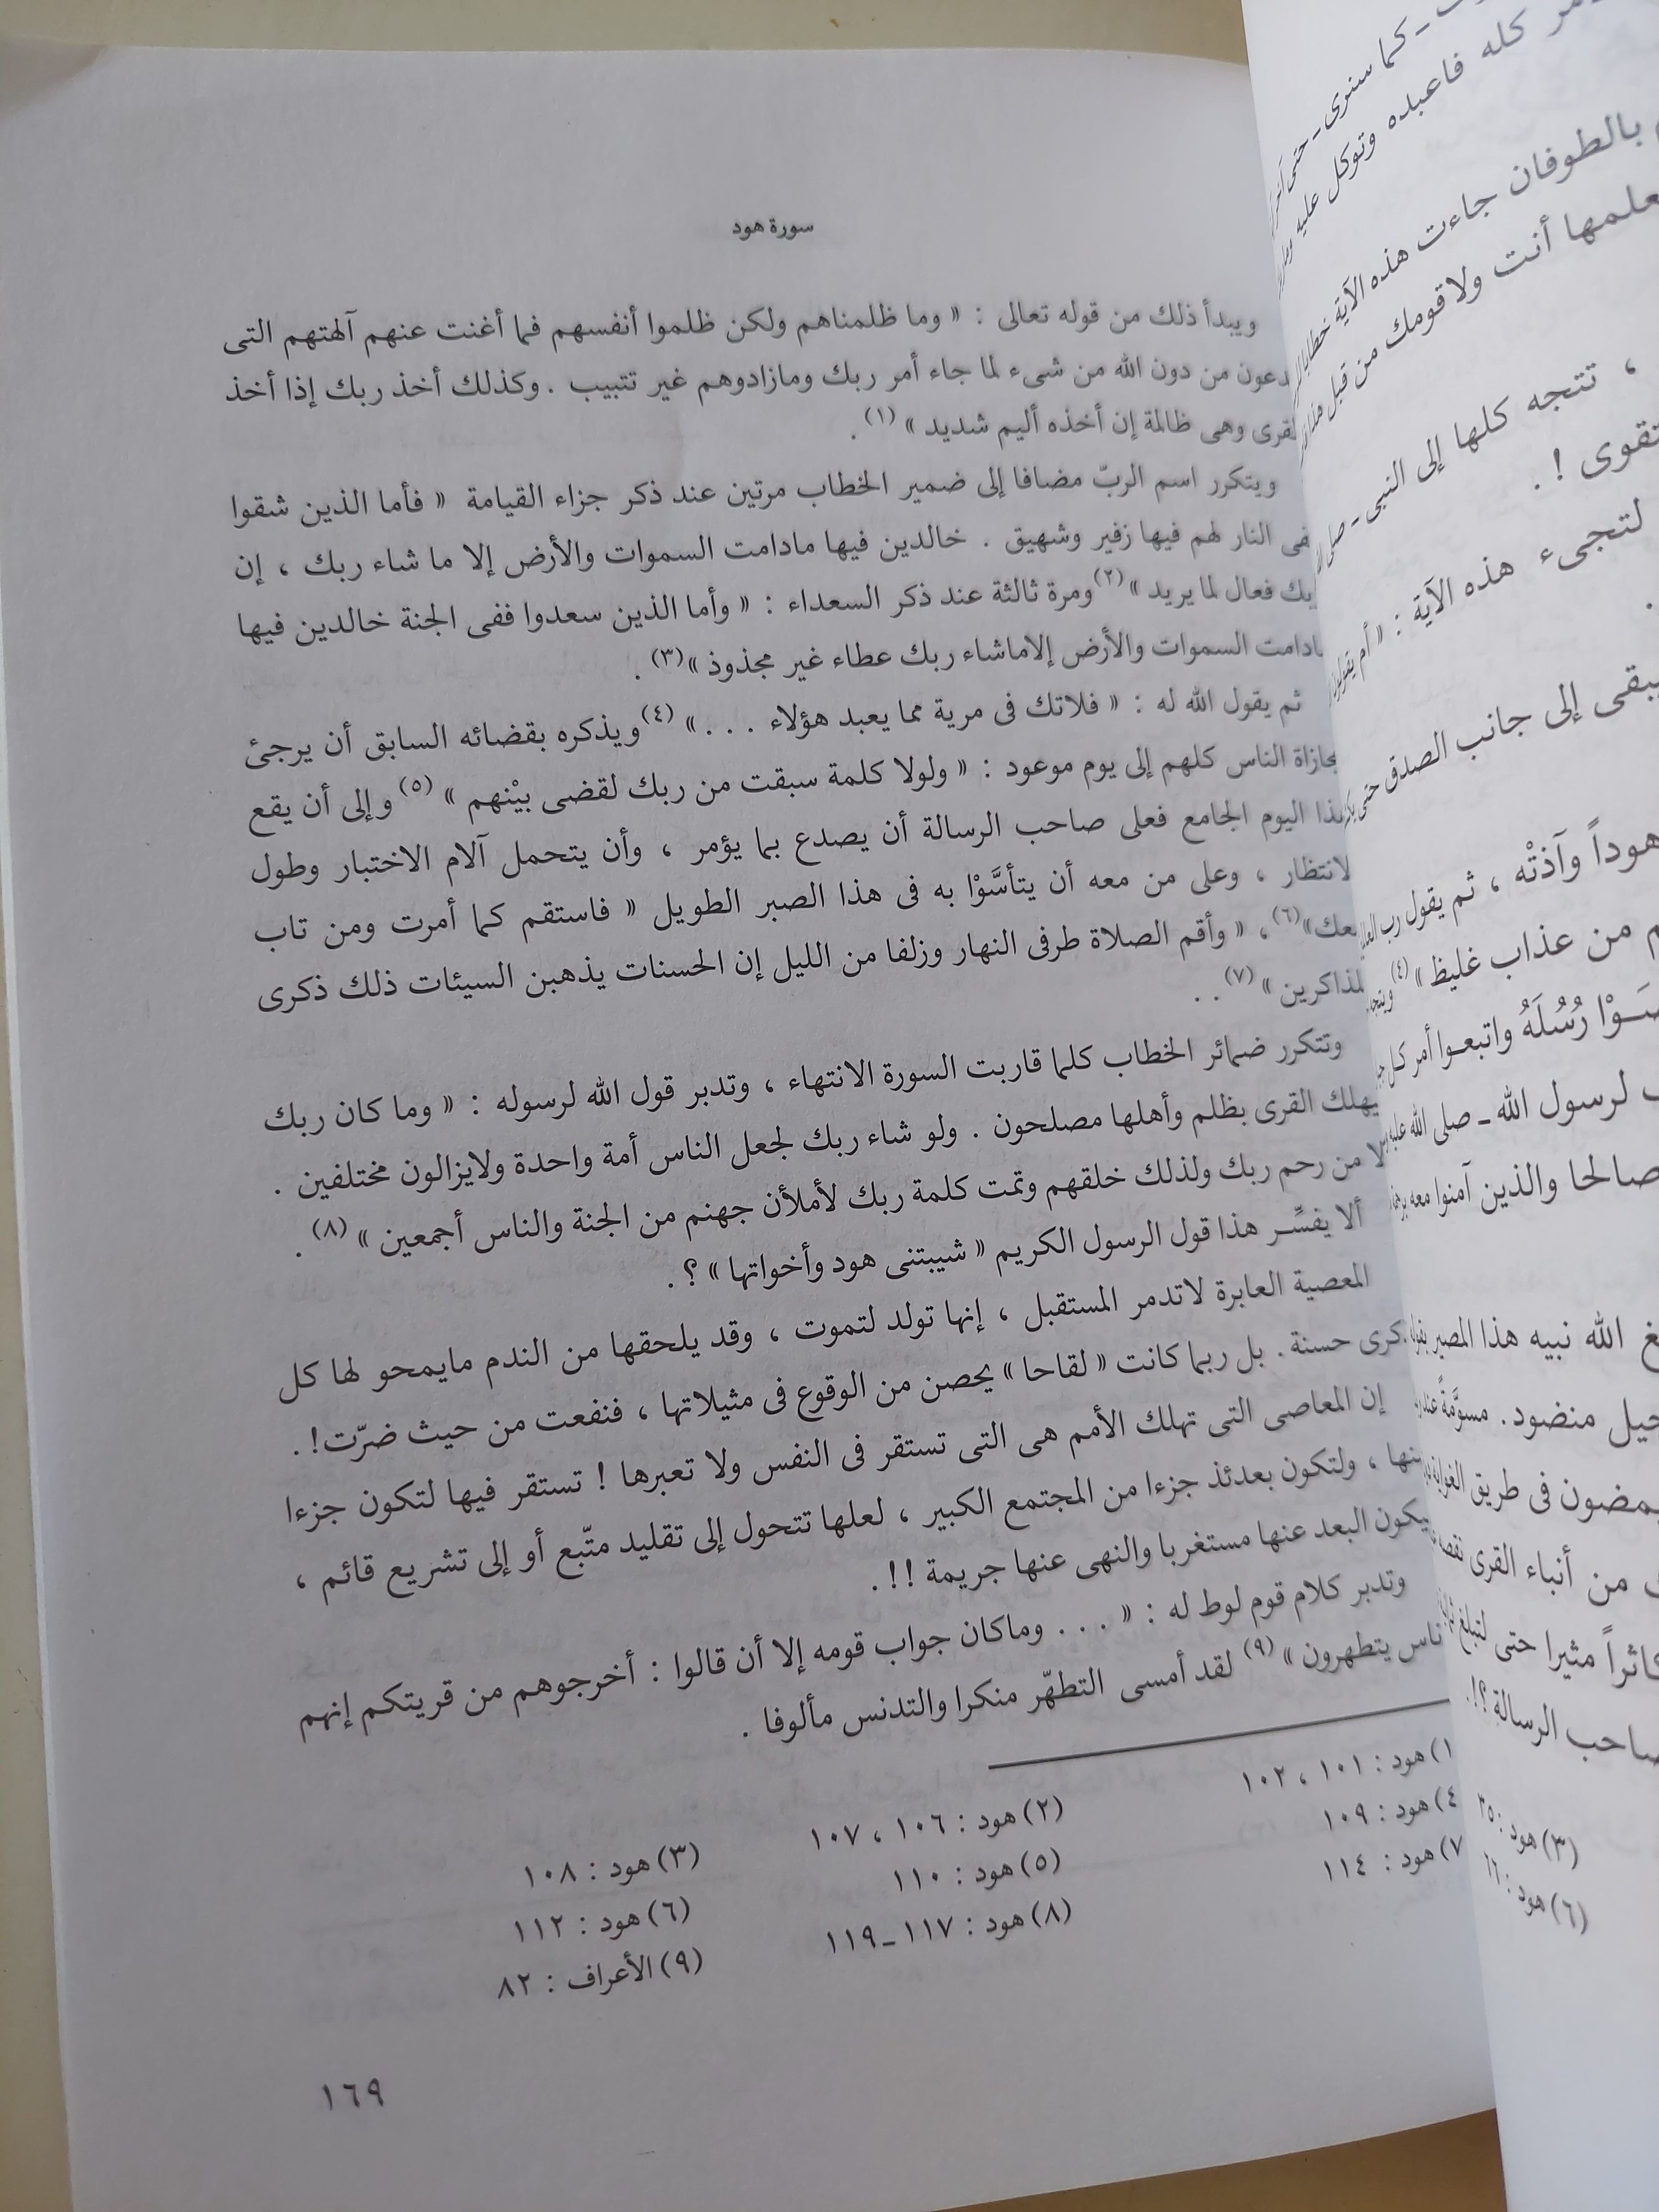 سورة هود
ويبدأ ذلك من قوله تعالى : « وما ظلمناهم ولكن ظلموا أنفسهم فما أغنت عنهم آلهتهم التى
يدعون من دون الله من شىء لما جاء أمر ربك ومازادوهم غير تتبيب . وكذلك أخذ ربك إذا أخذ
القرى وهى ظالمة إن أخذه أليم شديد » (١) .
ويتكرر اسم الربّ مضافا إلى ضمير الخطاب مرتين عند ذكر جزاء القيامة « فأما الذين شقوا
ففى النار لهم فيها زفير وشهيق . خالدين فيها مادامت السموات والأرض إلا ما شاء ربك ، إن
ربك فعال لما يريد » (٢) ومرة ثالثة عند ذكر السعداء : « وأما الذين سعدوا ففى الجنة خالدين فيها
مادامت السموات والأرض إلاماشاء ربك عطاء غير مجذوذ » (٣) .
ثم يقول الله له : « فلاتك فى مرية مما يعبد هؤلاء . . . » (٤) ويذكره بقضائه السابق أن يرجئ
مجازاة الناس كلهم إلى يوم موعود : « ولولا كلمة سبقت من ربك لقضى بيْنهم » (٥) وإلى أن يقع
هذا اليوم الجامع فعلى صاحب الرسالة أن يصدع بما يؤمر ، وأن يتحمل آلام الاختبار وطول
الانتظار ، وعلى من معه أن يتأسَّوْا به فى هذا الصبر الطويل « فاستقم كما أمرت ومن تاب
معك» (٦) ، « وأقم الصلاة طرفى النهار وزلفا من الليل إن الحسنات يذهبن السيئات ذلك ذكرى
للذاكرين » (٧) . .
وتتكرر ضمائر الخطاب كلما قاربت السورة الانتهاء ، وتدبر قول الله لرسوله : « وما كان ربك
ليهلك القرى بظلم وأهلها مصلحون . ولو شاء ربك لجعل الناس أمة واحدة ولايزالون مختلفين .
إلا من رحم ربك ولذلك خلقهم وتمت كلمة ربك لأملأن جهنم من الجنة والناس أجمعين » (٨) .
ألا يفسِّر هذا قول الرسول الكريم « شيبتنى هود وأخواتها » ؟ .
المعصية العابرة لاتدمر المستقبل ، إنها تولد لتموت ، وقد يلحقها من الندم مايمحو لها كل
ذكرى حسنة . بل ربما كانت « لقاحا » يحصن من الوقوع فى مثيلاتها ، فنفعت من حيث ضرّت! .
إن المعاصى التى تهلك الأمم هى التى تستقر فى النفس ولا تعبرها ! تستقر فيها لتكون جزءا
منها ، ولتكون بعدئذ جزءا من المجتمع الكبير ، لعلها تتحول إلى تقليد متّبع أو إلى تشريع قائم ،
فيكون البعد عنها مستغربا والنهى عنها جريمة !! .
وتدبر كلام قوم لوط له : « . . . وماكان جواب قومه إلا أن قالوا : أخرجوهم من قريتكم إنهم
أناس يتطهرون » (٩) لقد أمسى التطهّر منكرا والتدنس مألوفا .
(١) هود : ١٠١ ، ١٠٢
(٢) هود : ١٠٦ ، ١٠٧
(٣) هود : ١٠٨
(٤) هود : ١٠٩
(٥) هود : ١١٠
(٦) هود : ١١٢
(٧) هود : ١١٤
(٨) هود : ١١٧ - ١١٩
(٩) الأعراف : ٨٢
١٦٩
ـ كما سنرى ـ حتى
كله فاعبده وتوكل عليه
بالطوفان جاءت هذه الآية
أنت ولاقومك من قبل
، تتجه كلها إلى النبى ـ
! .
لتجىء هذه الآية : « أم يقولون
إلى جانب الصدق حتى
هوداً وآذتْه ، ثم يقول رب
من عذاب غليظ » (٤)
رُسُلَهُ واتبعوا أمر كل
لرسول الله ـ صلى الله عليه
صالحا والذين آمنوا معه
الله نبيه هذا المصير
منضود . مسوَّمةً عند
فى طريق الغواية
من أنباء القرى
مثيرا حتى لتبلغ
الرسالة ؟! .
(٣) هود : ٣٥
(٦) هود :